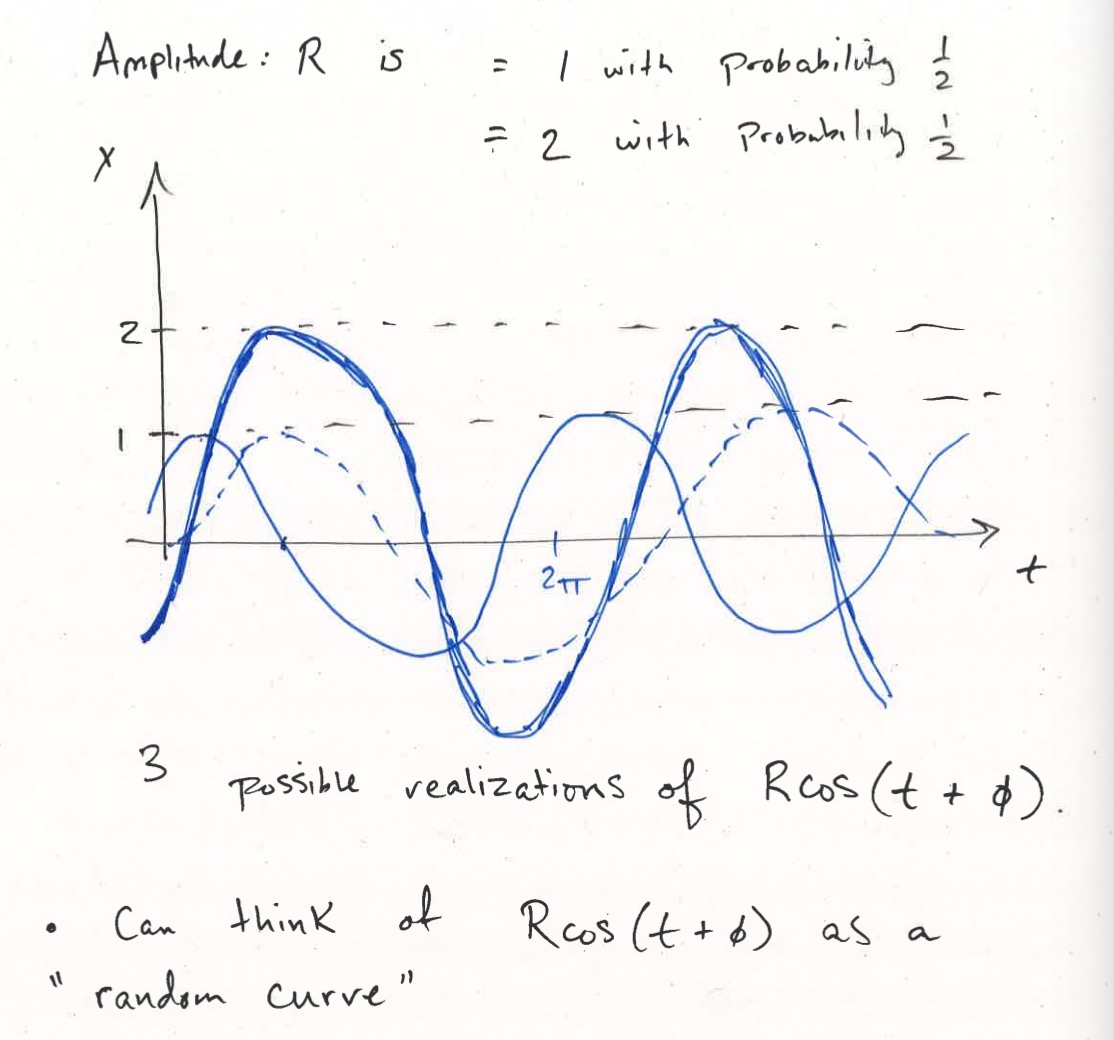 Amplitude: R is = 1 with probability 1/2
= 2 with probability 1/2
X
2
1
2π
t
3 possible realizations of Rcos(t + ϕ).
• Can think of Rcos(t + ϕ) as a
"random curve"